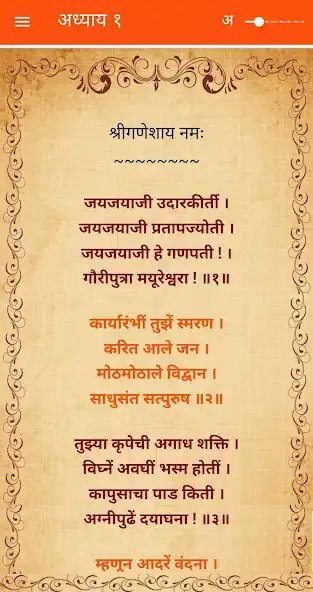 अध्याय १
अ
श्रीगणेशाय नमः
~~~~~~~~
जयजयाजी उदारकीर्ती ।
जयजयाजी प्रतापज्योती ।
जयजयाजी हे गणपती ! ।
गौरीपुत्रा मयूरेश्वरा ! ॥१॥
कार्यारंभीं तुझें स्मरण ।
करित आले जन ।
मोठमोठाले विद्वान ।
साधुसंत सत्पुरुष ॥२॥
तुझ्या कृपेची अगाध शक्ति ।
विघ्नें अवघीं भस्म होतीं ।
कापुसाचा पाड किती ।
अग्नीपुढें दयाघना ! ॥३॥
म्हणून आदरें वंदना ।